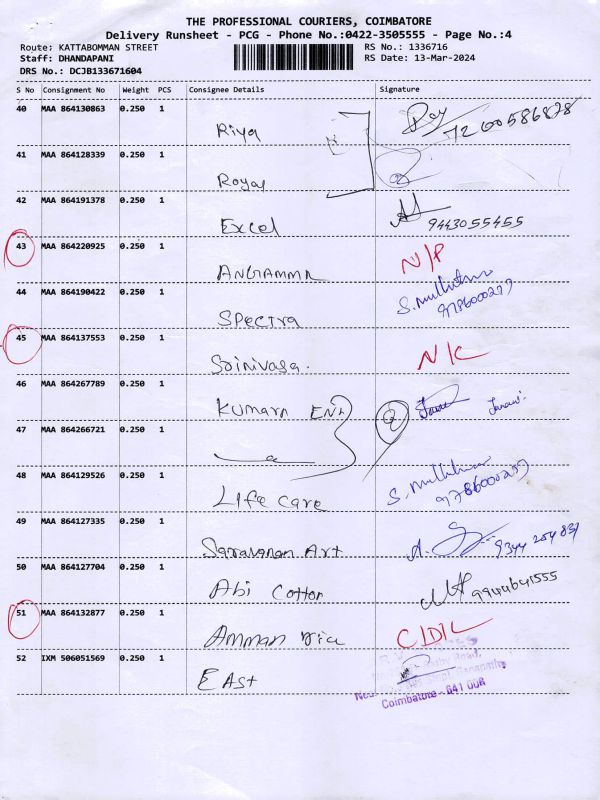 THE PROFESSIONAL COURIERS, COIMBATORE
Delivery Runsheet - PCG - Phone No.:0422-3505555 - Page No.:4
Route: KATTABOMMAN STREET RS No.: 1336716
Staff: DHANDAPANI RS Date: 13-Mar-2024
DRS No.: DCJB133671604
S No Consignment No Weight PCS Consignee Details Signature
40 MAA 864130863 0.250 1 Riya 7200586878
41 MAA 864128339 0.250 1 Royal
42 MAA 864191378 0.250 1 Excel 9443055455
43 MAA 864220925 0.250 1 ANGAMMA N/P
44 MAA 864190422 0.250 1 Spectra 9786000277
45 MAA 864137553 0.250 1 Srinivasa. N/C
46 MAA 864267789 0.250 1 Kumara
47 MAA 864266721 0.250 1
48 MAA 864129526 0.250 1 Life care 9786000277
49 MAA 864127335 0.250 1 Saravanan Art
50 MAA 864127704 0.250 1 Abi Cotton 9944641555
51 MAA 864132877 0.250 1 Amman
52 IXM 506051569 0.250 1 East
Coimbatore - 641 006